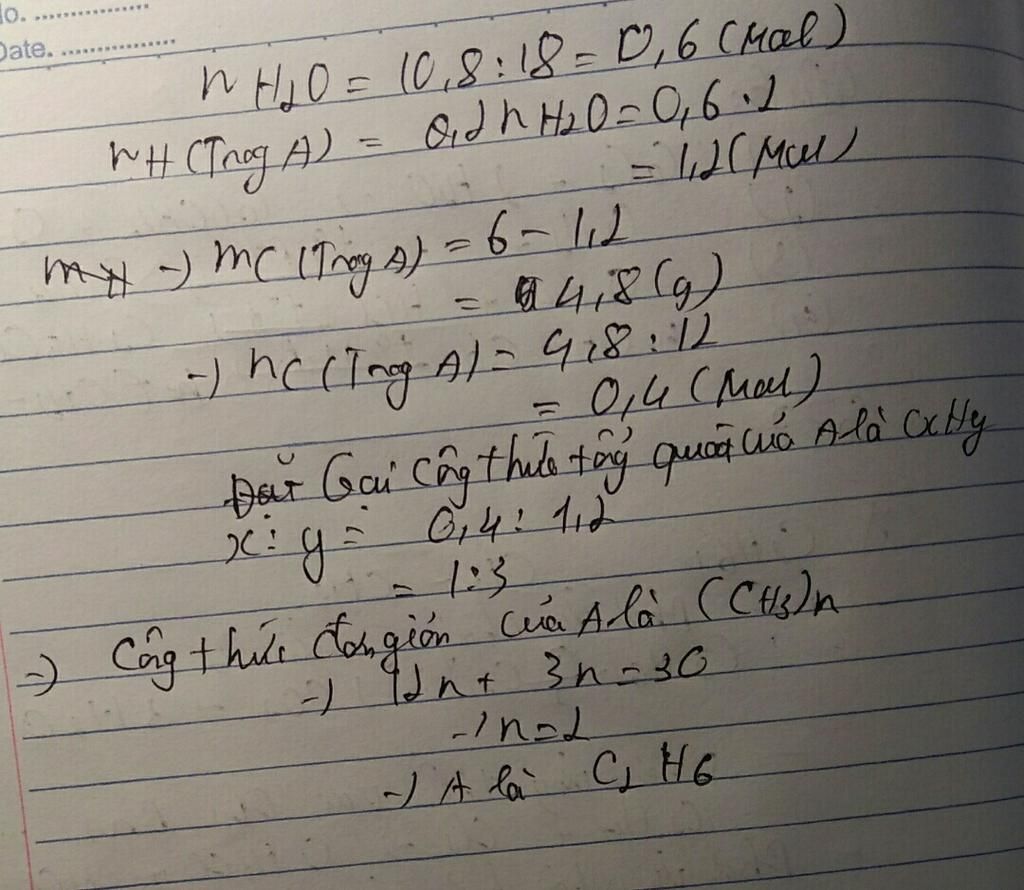 No. ..................
Date. ..................
nH2O = 10,8 : 18 = 0,6 (Mol)
nH (Trog A) = 0,2nH2O = 0,6 . 2
= 1,2 (Mol)
mH -) mC (Trog A) = 6 - 1,2
= 4,8 (g)
-) nC (Trog A) = 4,8 : 12
= 0,4 (Mol)
Đặt Gọi Công thức tổng quát của A là CxHy
x : y = 0,4 : 1,2
= 1 : 3
=) Công thức đơn giản của A là (CH3)n
-) 12n + 3n = 30
-) n = 2
-) A là C2H6